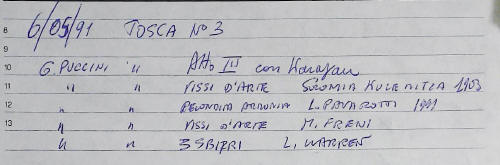 8 6/05/91 TOSCA No 3
9
10 G. PUCCINI " Atto III con Karajan
11 " " VISSI D'ARTE SOLOMIA 1903
12 " " RECONDITA ARMONIA L. PAVAROTTI
13 " " VISSI D'ARTE M. FRENI
" " 3 SBIRRI L. WARREN